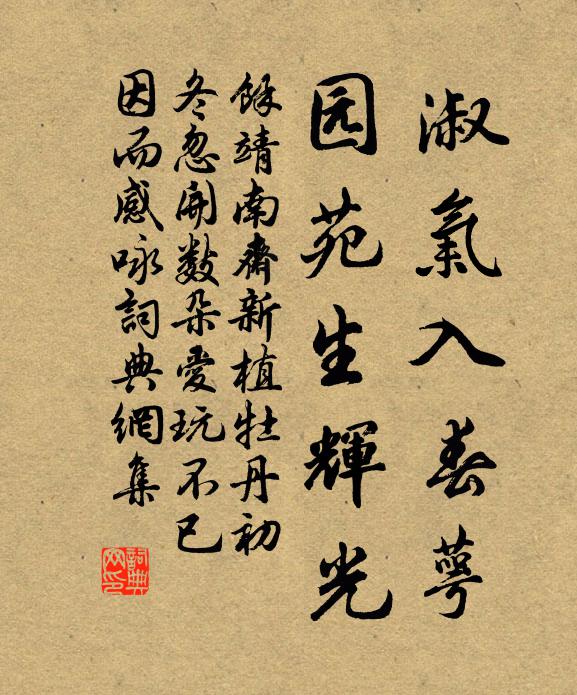 淑氣入春萼
园苑生輝光
餘靖南齋新植牡丹初
冬忽開數朵愛玩不已
因而感咏詞典網集
詞典网印